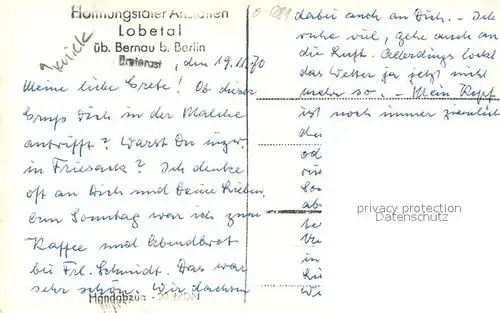 Hoffnungstaler Anstalten
Lobetal
üb. Bernau b. Berlin
Zurück
, den 19.11.70
Meine liebe Grete! Ob dieser
Gruß Dich in der Malche
antrifft? Warst Du inzw.
in Friesack? Ich denke
oft an Dich und Deine Lieben.
Am Sonntag war ich zum
Kaffee und Abendbrot
bei Frl. Schmidt. Das war
sehr schön. Wir dachten
Handabzug
dabei auch an Dich. - Ich
ruhe viel, gehe auch an
die Luft. Allerdings lockt
das Wetter ja jetzt nicht
mehr so. - Mein Kopf
ist noch immer ziemlich
privacy protection
Datenschutz
in